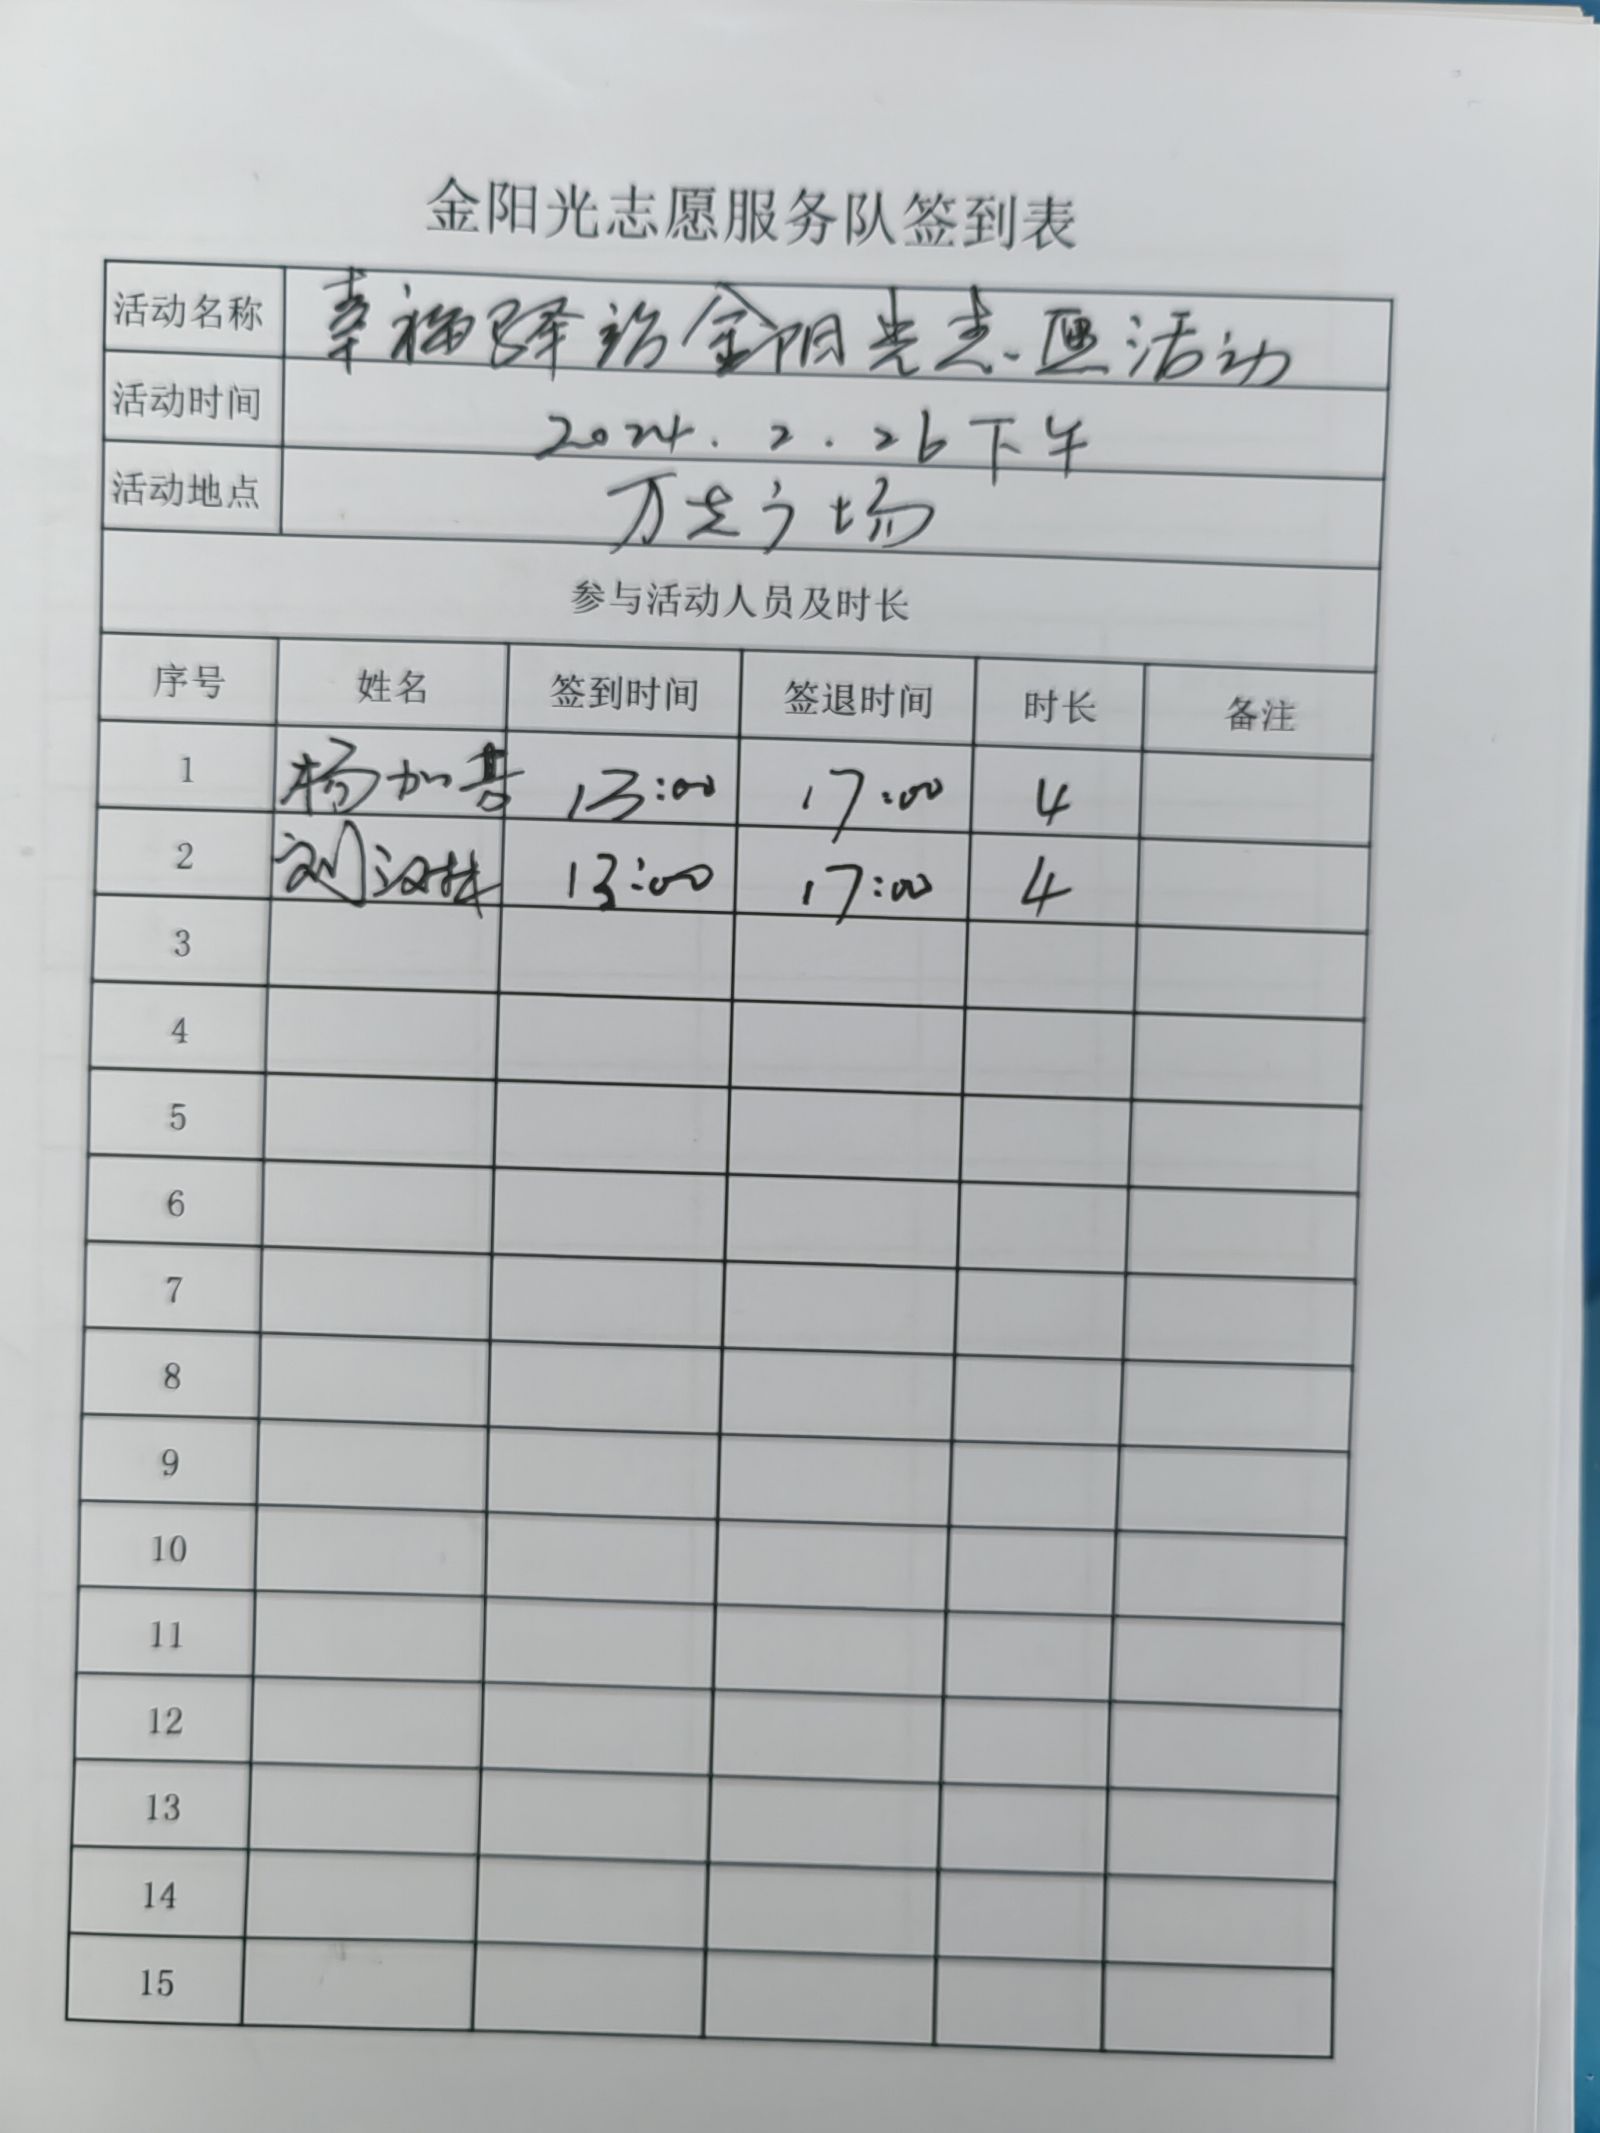 金阳光志愿服务队签到表
活动名称 幸福驿站金阳光志愿活动
活动时间 2024.2.26下午
活动地点 万达广场
参与活动人员及时长
序号 姓名 签到时间 签退时间 时长 备注
1 杨加 13:00 17:00 4
2 刘汉林 13:00 17:00 4
3
4
5
6
7
8
9
10
11
12
13
14
15